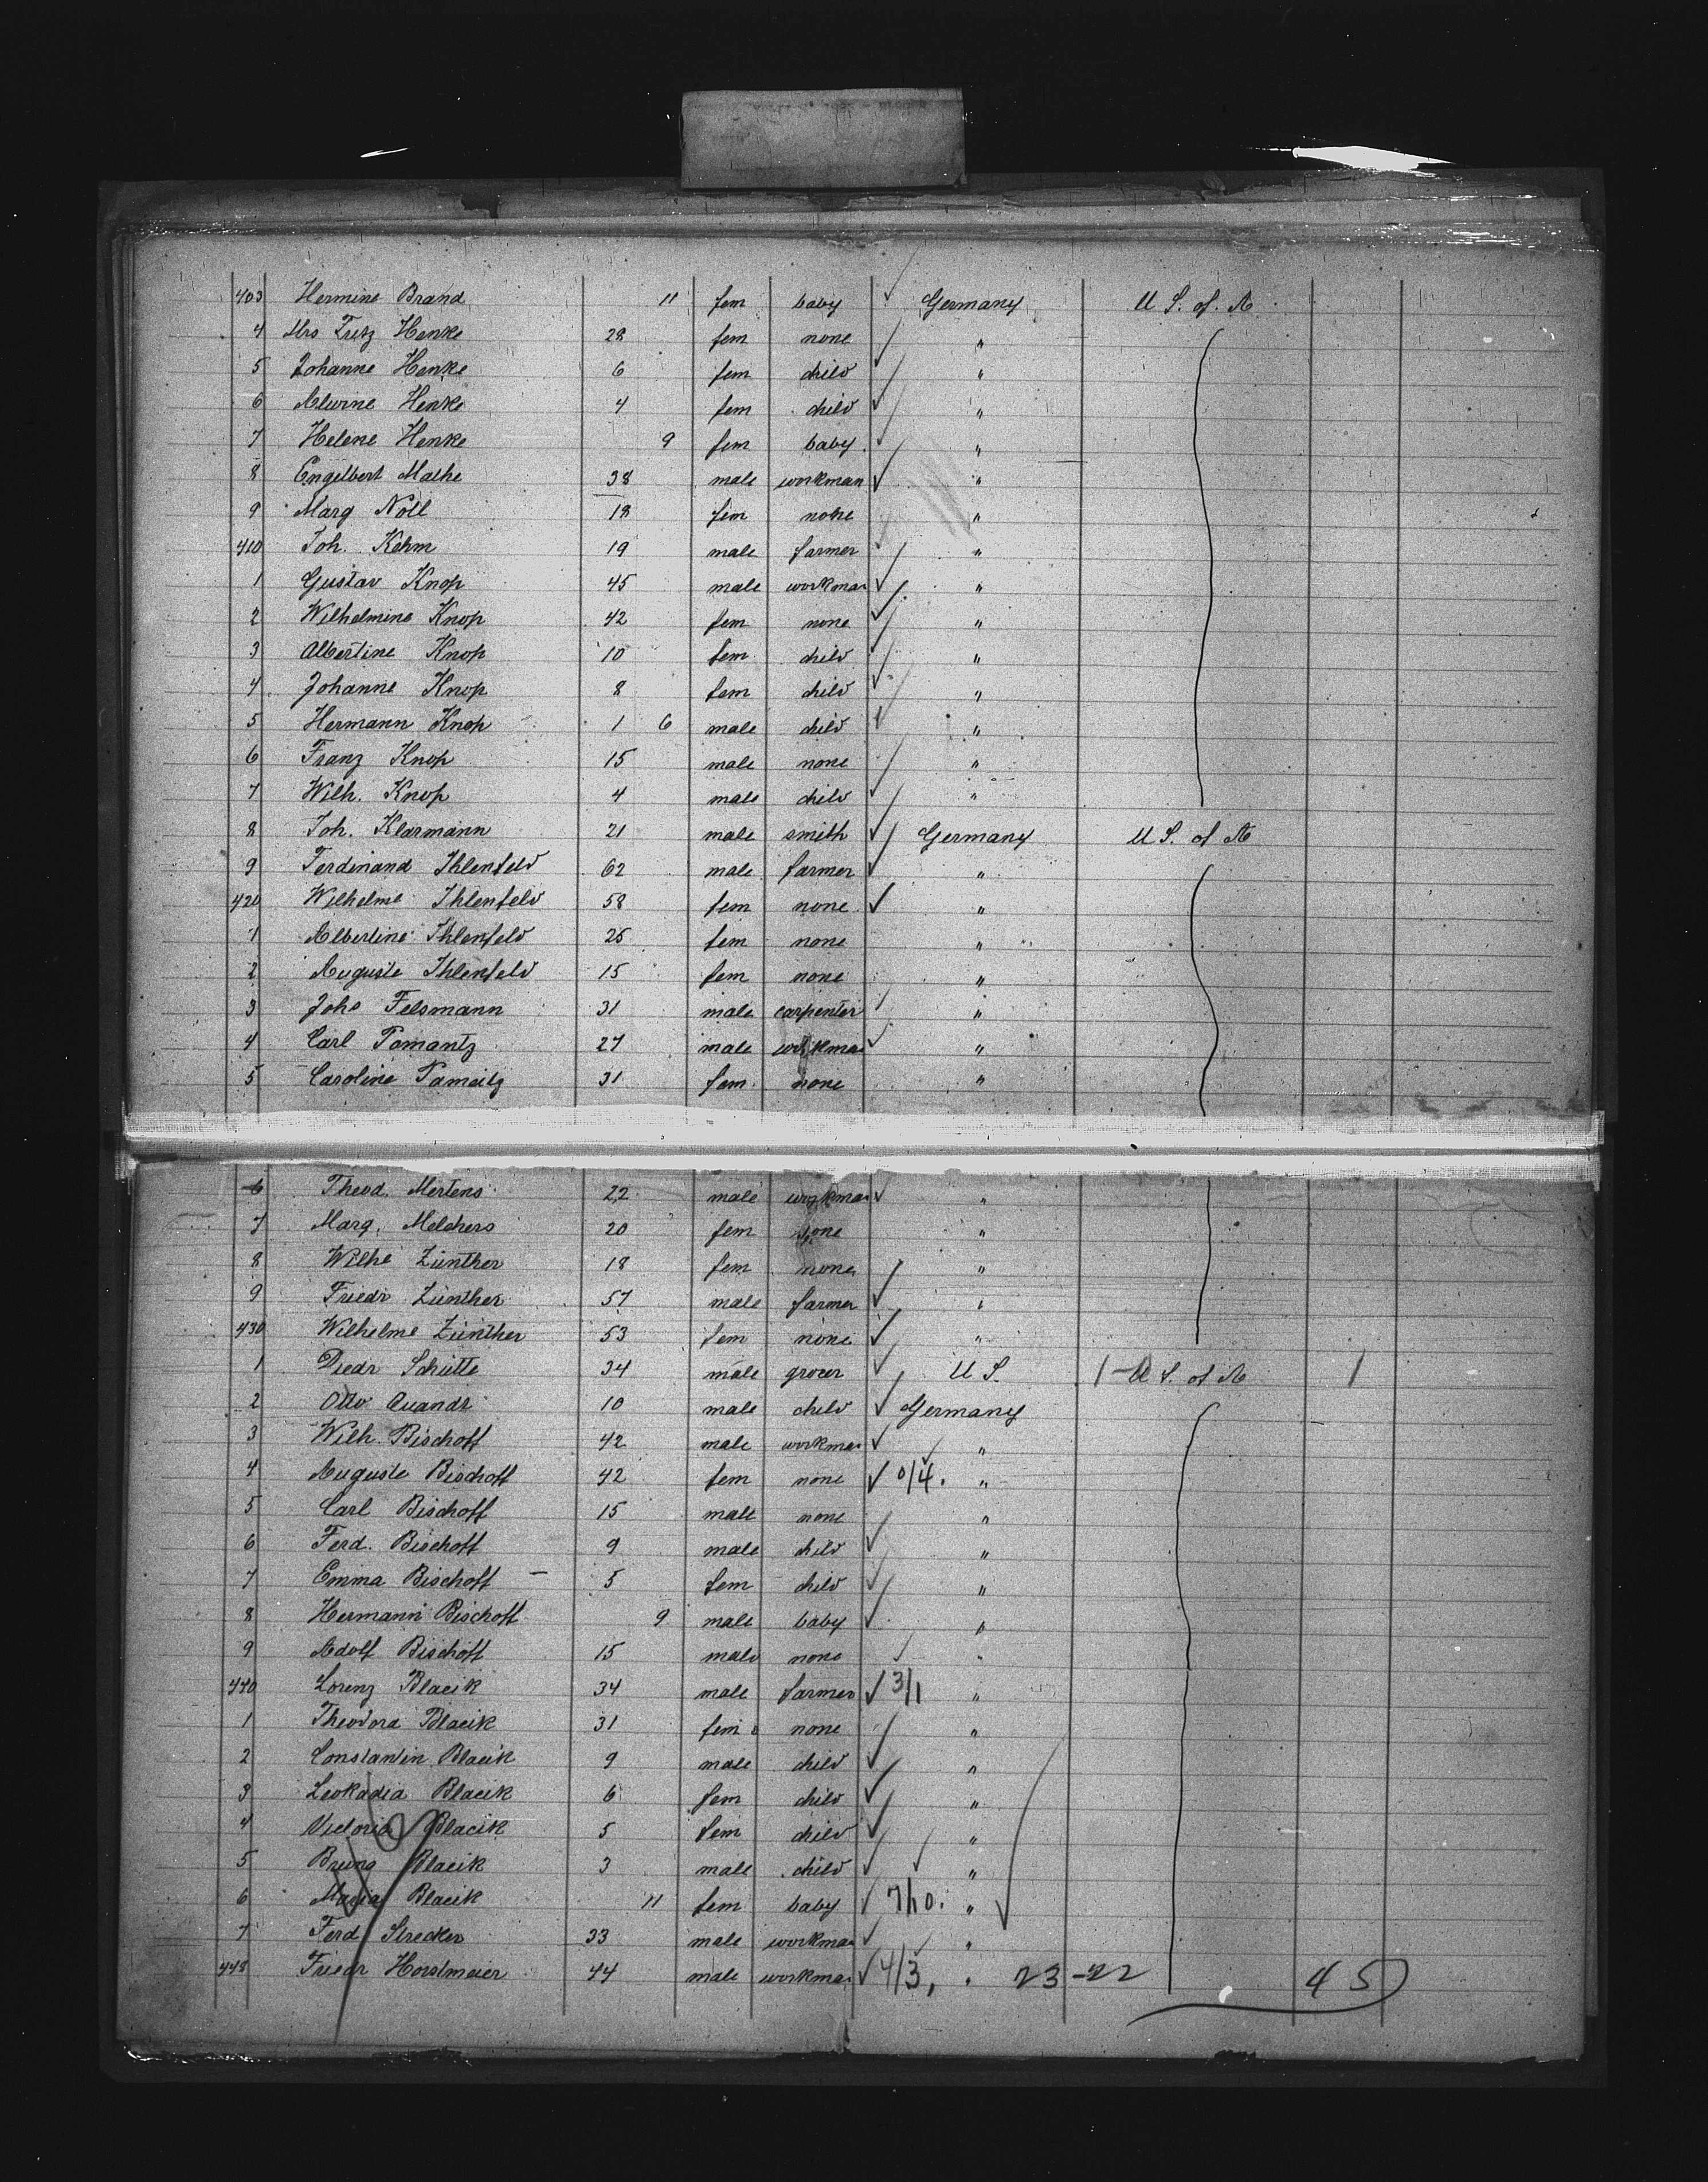 403 Hermine Brand 11 fem baby Germany U S. of. A
4 Mrs Fritz Henke 28 fem none "
5 Johanne Henke 6 fem child "
6 Alwine Henke 4 fem child "
7 Helene Henke 9 fem baby "
8 Engelbert Mathe 38 male workman "
9 Marg Noll 18 fem none "
410 Joh. Kehm 19 male farmer "
1 Gustav Knop 45 male workman "
2 Wilhelmine Knop 42 fem none "
3 Albertine Knop 10 fem child "
4 Johanne Knop 8 fem child "
5 Hermann Knop 1 6 male child "
6 Franz Knop 15 male none "
7 Wilh. Knop 4 male child "
8 Joh. Klarmann 21 male smith Germany U S. of A
9 Ferdinand Ihlenfeld 62 male farmer "
420 Wilhelme Ihlenfeld 58 fem none "
1 Albertine Ihlenfeld 25 fem none "
2 Auguste Ihlenfeld 15 fem none "
3 Johs Felsmann 31 male carpenter "
4 Carl Pomantz 27 male workman "
5 Caroline 31 fem none "
6 Theod. Mertens 22 male workman "
7 Marg. Melchers 20 fem none "
8 Wilhe Zünther 18 fem none "
9 Friedr Zünther 57 male farmer "
430 Wilhelme Zünther 53 fem none "
1 Diedr Schütte 34 male grocer U S. 1- U S. of A 1
2 Otto Quandt 10 male child Germany
3 Wilh. Bischoff 42 male workman "
4 Auguste Bischoff 42 fem none 0/4. "
5 Carl Bischoff 15 male none "
6 Ferd. Bischoff 9 male child "
7 Emma Bischoff 5 fem child "
8 Hermann Bischoff 9 male baby "
9 Adolf Bischoff 15 male none "
440 Lorenz Blacik 34 male farmer 3/1 "
1 Theodora Blacik 31 fem none "
2 Constantin Blacik 9 male child "
3 Leokadia Blacik 6 fem child "
4 Victoria Blacik 5 fem child "
5 Bruno Blacik 3 male child "
6 Maria Blacik 11 fem baby 7/10. "
7 Ferd Strecker 33 male workman "
448 Friedr Horstmeier 44 male workman 4/3, " 23-22 45